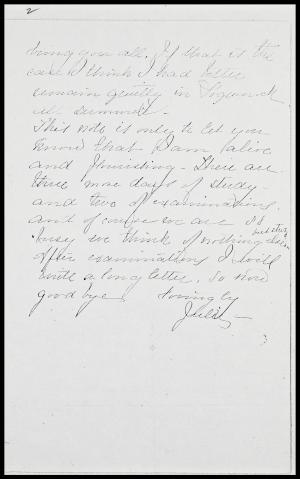 2
bring you all. If that is the
case I think I had better
remain quietly in
all summer.
This note is only to let you
know that I am alive
and flourishing. There are
three more days of study
and two of examinations.
and of course we are so
busy we think of nothing
but study
After examinations I will
write a long letter. So now
goodbye, lovingly